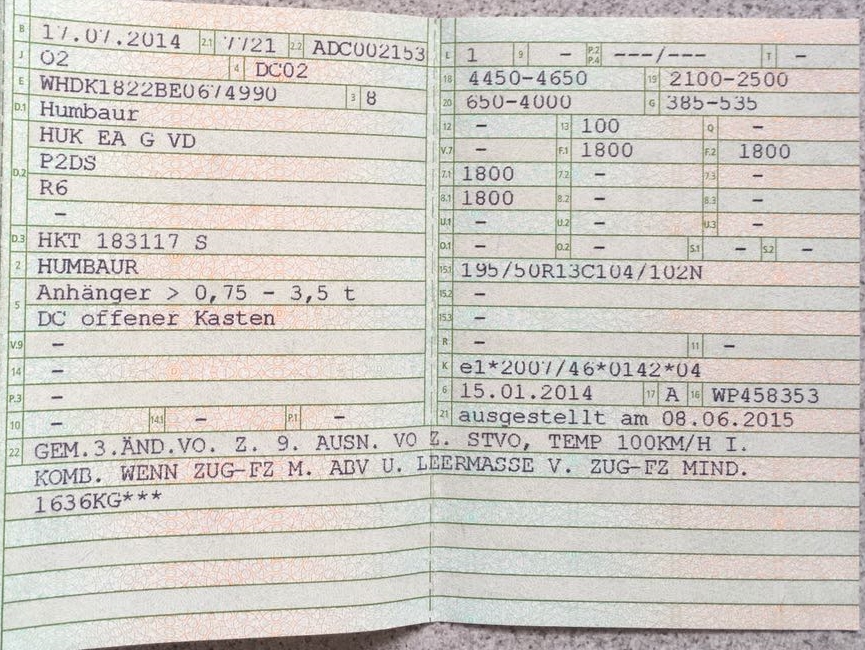 B 17.07.2014 2.1 7721 2.2 ADC002153
J O2 4 DC02
E WHDK1822BE0674990 3 8
D.1 Humbaur
HUK EA G VD
D.2 P2DS
R6
-
D.3 HKT 183117 S
2 HUMBAUR
5 Anhänger > 0,75 - 3,5 t
DC offener Kasten
V.9 -
14 -
P.3 -
10 - 14.1 - P.1 -
L 1 9 - P.2 P.4 ---/--- T -
18 4450-4650 19 2100-2500
20 650-4000 G 385-535
12 - 13 100 Q -
V.7 - F.1 1800 F.2 1800
7.1 1800 7.2 - 7.3 -
8.1 1800 8.2 - 8.3 -
U.1 - U.2 - U.3 -
O.1 - O.2 - S.1 - S.2 -
15.1 195/50R13C104/102N
15.2 -
15.3 -
R - 11 -
K e1*2007/46*0142*04
6 15.01.2014 17 A 16 WP458353
21 ausgestellt am 08.06.2015
22 GEM.3.ÄND.VO. Z. 9. AUSN. VO Z. STVO, TEMP 100KM/H I.
KOMB. WENN ZUG-FZ M. ABV U. LEERMASSE V. ZUG-FZ MIND.
1636KG***